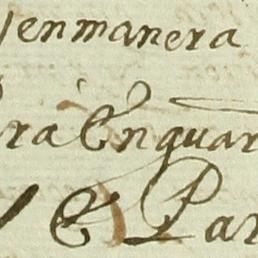 enmanera
ra Enguar
& Par